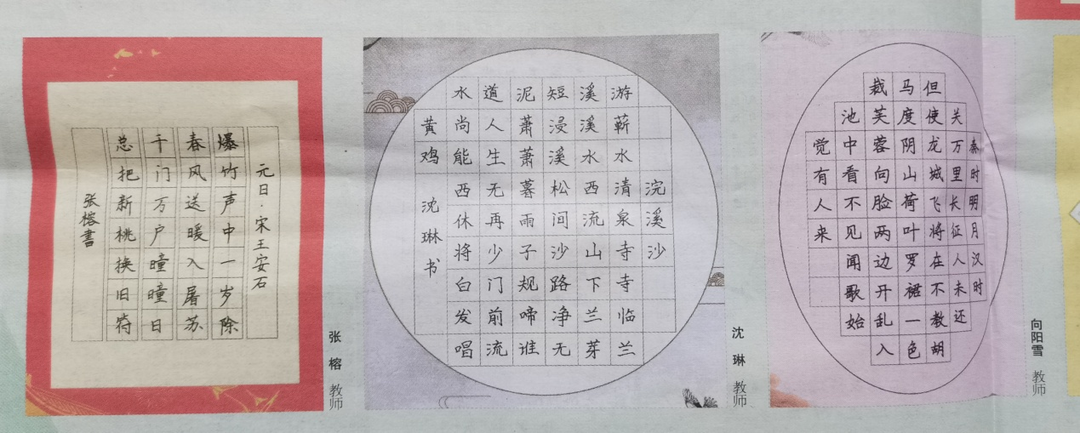 元日·宋王安石
爆竹声中一岁除
春风送暖入屠苏
千门万户瞳瞳日
总把新桃换旧符
张榕書
张榕 教师
浣溪沙
游蕲水清泉寺寺临兰
溪溪水西流山下兰芽
短浸溪松间沙路净无
泥萧萧暮雨子规啼谁
道人生无再少门前流
水尚能西休将白发唱
黄鸡 沈琳书
沈琳 教师
秦时明月汉时
关万里长征人未还
但使龙城飞将在不教胡
马度阴山荷叶罗裙一色
裁芙蓉向脸两边开乱入
池中看不见闻歌始
觉有人来
向阳雪 教师